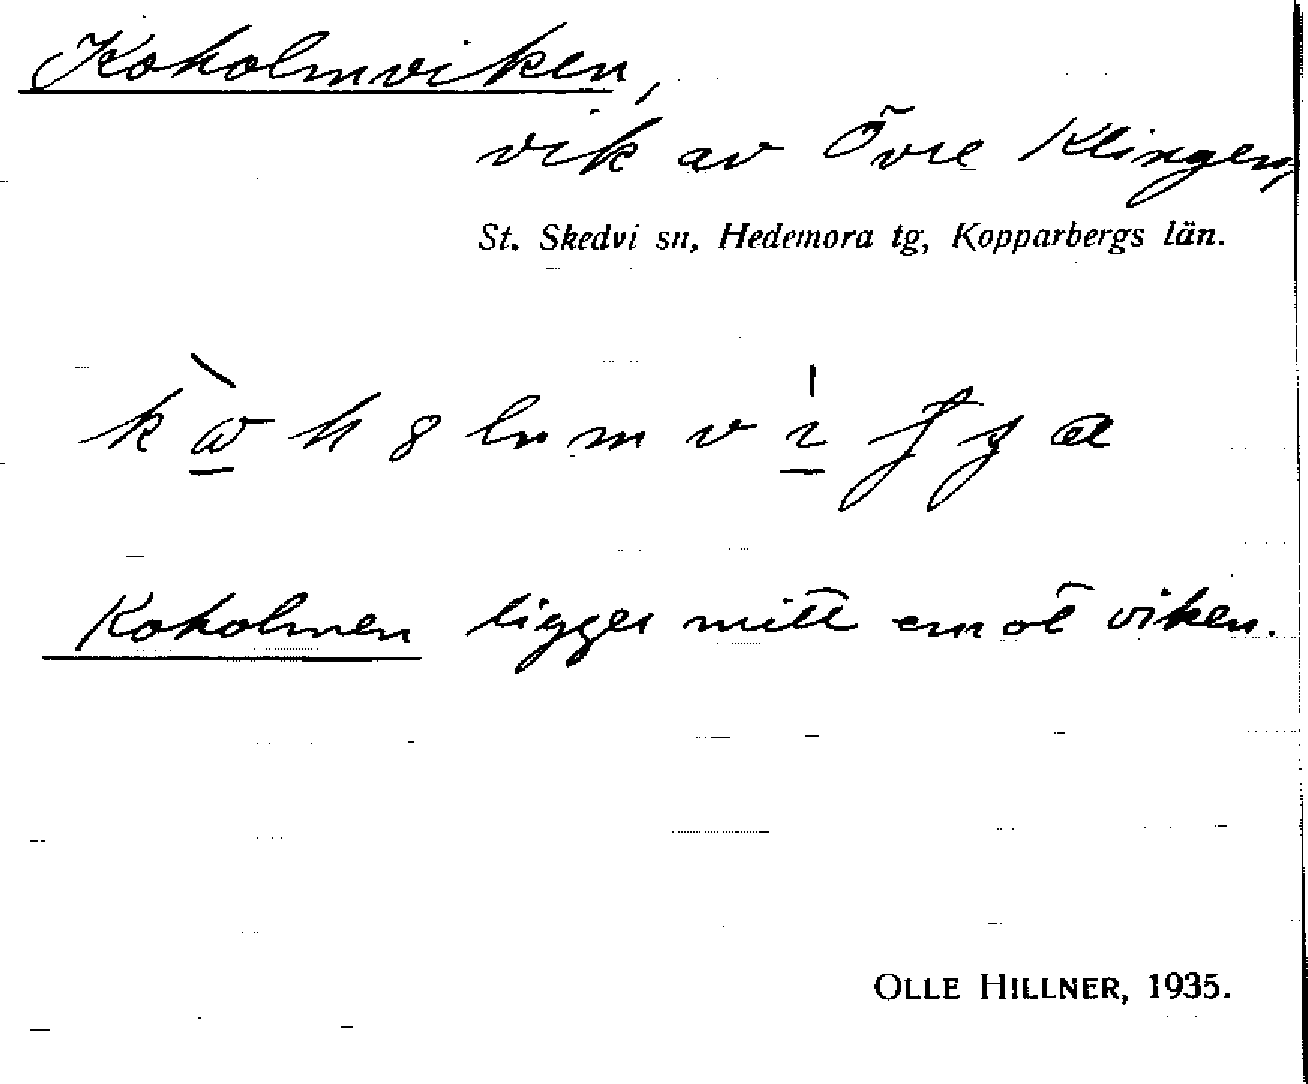 Koholmviken,
vik av Övre Klingen,
St. Skedvi sn, Hedemora tg, Kopparbergs län.
Koholmen ligger mitt emot viken.
OLLE HILLNER, 1935.